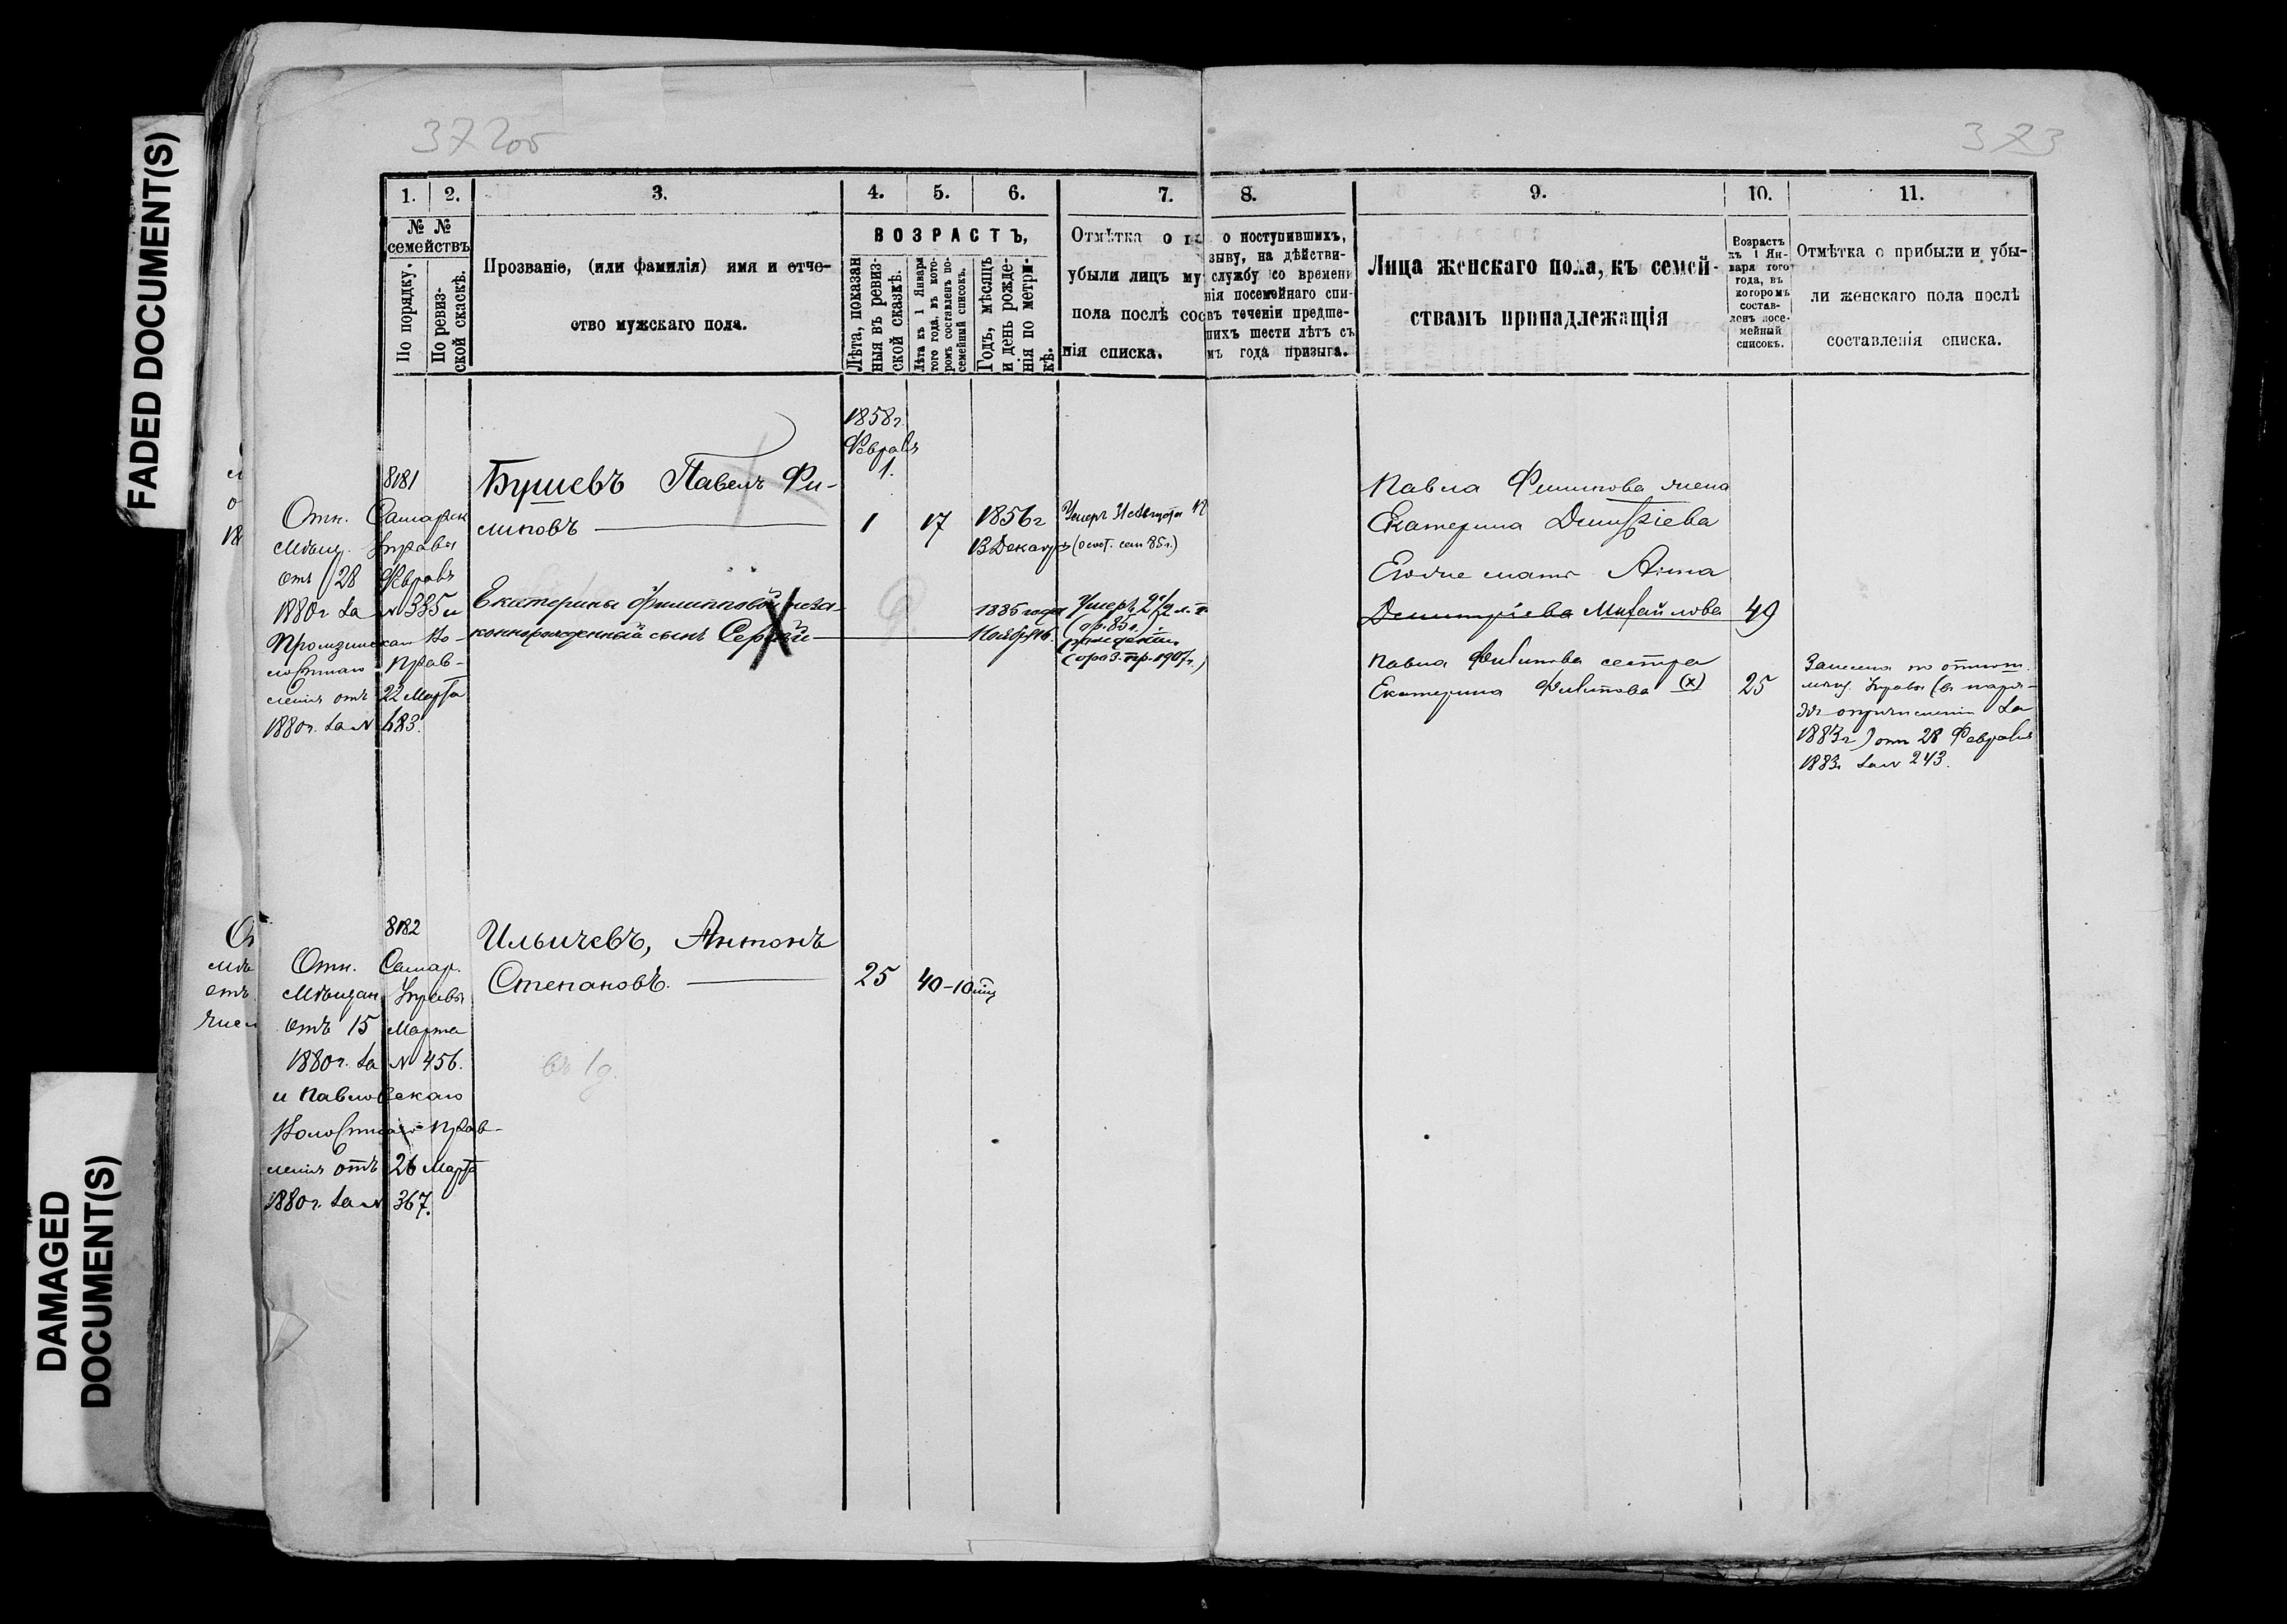 FADED DOCUMENT(S)
DAMAGED
DOCUMENT(S)
372об
373
1. 2. 3. 4. 5. 6. 7. 8. 9. 10. 11.
№ №
семействъ
По порядку.
По ревиз-
ской сказкѣ.
Прозваніе, (или фамилія) имя и отче-
ство мужскаго пола.
ВОЗРАСТЪ,
Лѣта, показан
ныя въ ревиз-
ской сказкѣ.
Лѣта къ 1 Января
того года, въ кото-
ромъ составленъ по-
семейный списокъ.
Годъ, мѣсяцъ
и день рожде-
нія по метри-
кѣ.
Отмѣтка о
убыли лицъ му
пола послѣ сос
нія списка.
о поступившихъ,
зыву, на дѣйстви-
службу со времени
нія посемейнаго спи-
въ теченіи предше-
шихъ шести лѣтъ съ
мъ года призыва.
Лица женскаго пола, къ семей-
ствамъ принадлежащія
Возрастъ
къ 1 Ян-
варя того
года, въ
которомъ
состав-
ленъ посе-
мейный
списокъ.
Отмѣтка о прибыли и убы-
ли женскаго пола послѣ
составленія списка.
8181
Отн. Самарск
Мѣщ. Управы
отъ 28 Февраля
1880г. за № 335 и
Промзинскаго Во-
лостнаго Прав-
ленія отъ 22 Марта
1880г. за № 483.
Бушевъ Павелъ Фи-
липовъ
1858г.
Февраля
1.
1 17 1856г
13 Декабря
Умеръ 31 Августа
Екатерины Филипповой неза-
коннорожденный сынъ Сергѣй
1886 года
Ноября
Умеръ
Павла Филипова жена
Екатерина Дмитріева
Его же мать Анна
Димитріева Михайлова 49
Павла Филипова сестра
Екатерина Филипова (х) 25
Занесена по отнош.
мѣщ. Управы (въ наря-
дѣ о причисленіи за
1883г.) отъ 28 Февраля
1883г. за № 243.
8182
Отн. Самар.
Мѣщан. Управы
отъ 15 Марта
1880г. за № 456.
и Павловскаго
Волостнаго Прав-
ленія отъ 26 Марта
1880г. за № 367.
Ильичевъ, Антонъ
Степановъ.
25 40-10